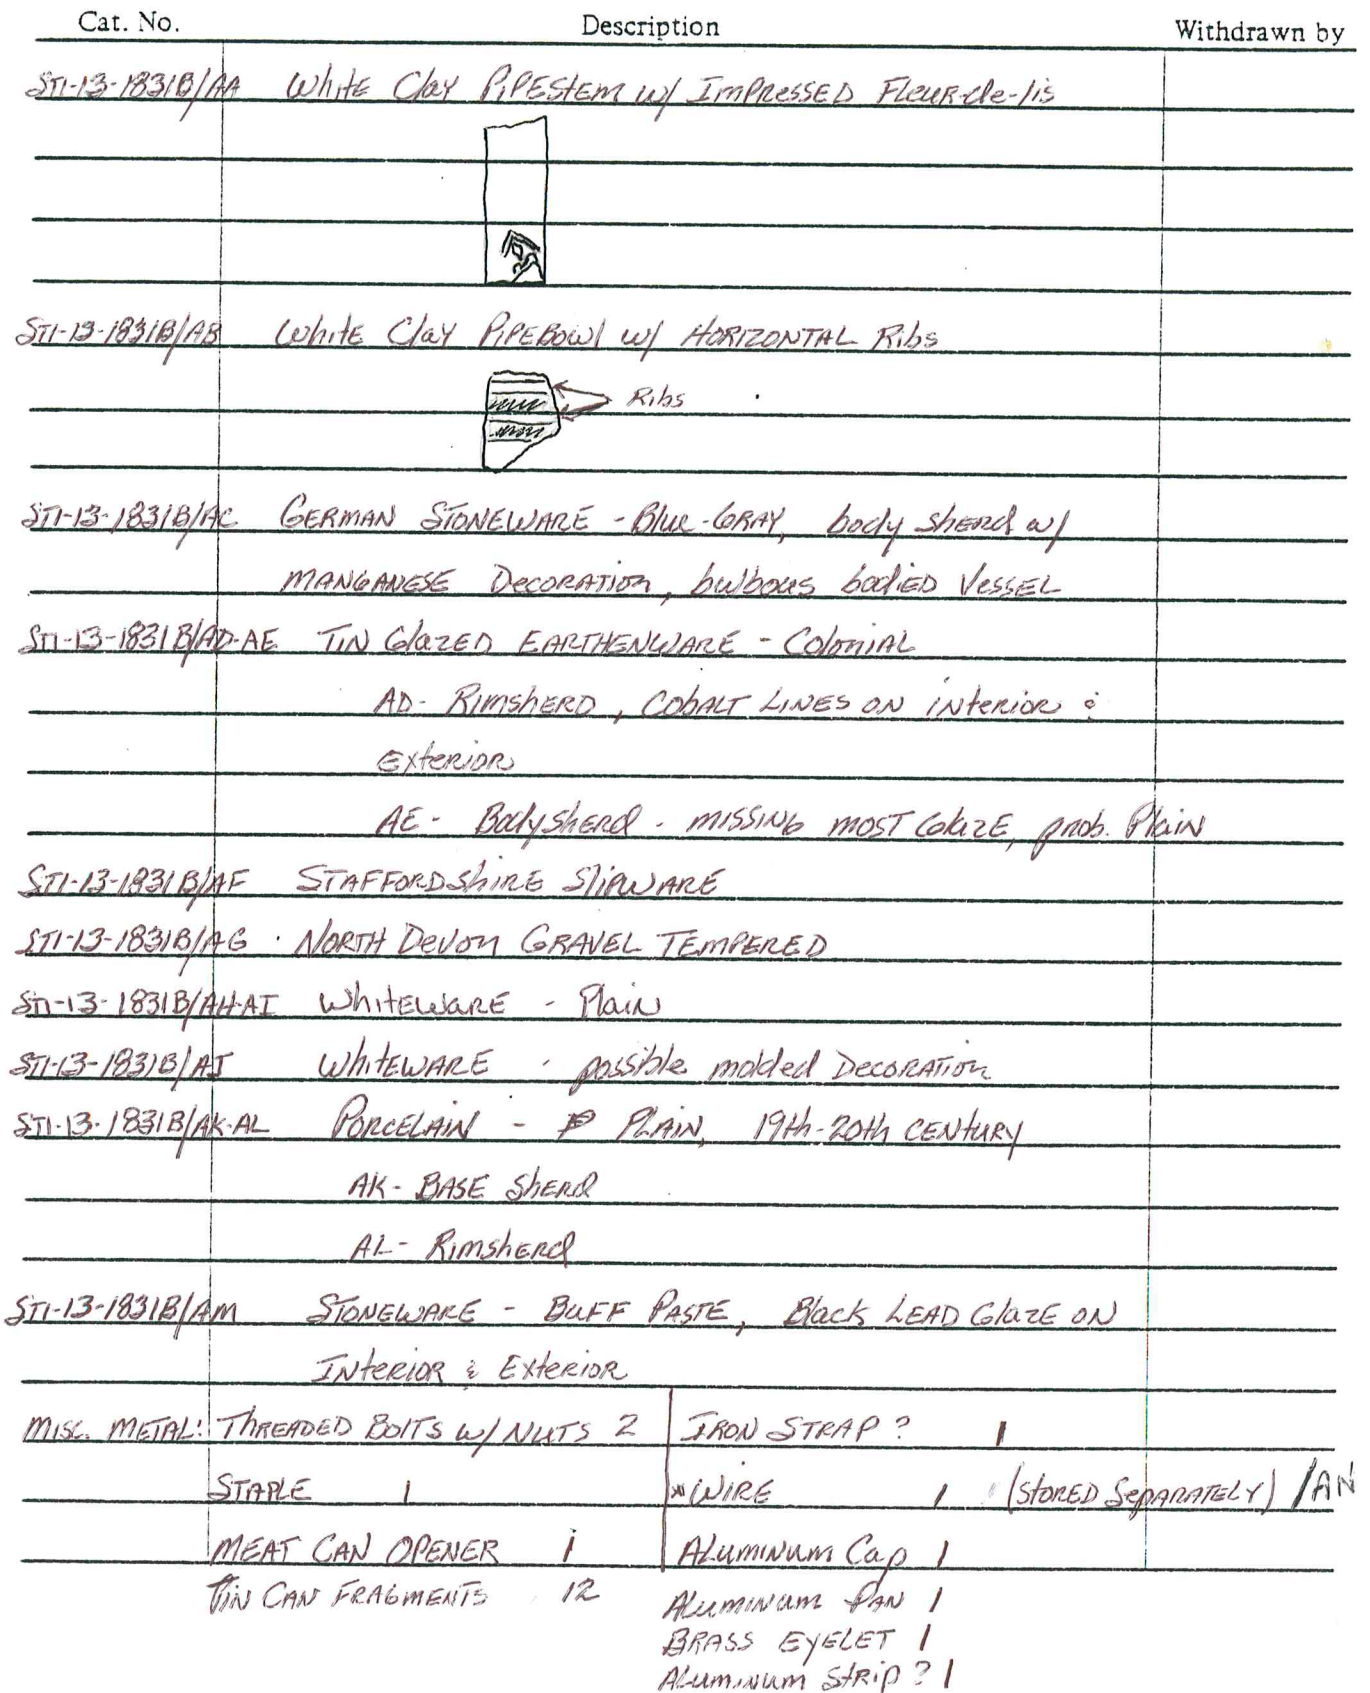 Cat. No. Description Withdrawn by
ST1-13-1831B/AA White Clay Pipestem w/ Impressed Fleur-de-lis
ST1-13-1831B/AB White Clay Pipebowl w/ Horizontal Ribs
Ribs
ST1-13-1831B/AC German Stoneware - Blue-Gray, body sherd w/
Manganese Decoration, bulbous bodied Vessel
ST1-13-1831B/AD-AE Tin Glazed Earthenware - Colonial
AD- Rimsherd, Cobalt Lines on interior &
Exterior
AE - Bodysherd - missing most Glaze, prob. Plain
ST1-13-1831B/AF Staffordshire Slipware
ST1-13-1831B/AG North Devon Gravel Tempered
ST1-13-1831B/AH-AI Whiteware - Plain
ST1-13-1831B/AJ Whiteware - possible molded Decoration
ST1-13-1831B/AK-AL Porcelain - Plain, 19th-20th century
AK- Base Sherd
AL- Rimsherd
ST1-13-1831B/AM Stoneware - Buff Paste, Black Lead Glaze on
Interior & Exterior
Misc. Metal: Threaded Bolts w/ Nuts 2 Iron Strap? 1
Staple 1 *Wire 1 (Stored Separately) /AN
Meat Can Opener 1 Aluminum Cap 1
Tin Can Fragments 12 Aluminum Pan 1
Brass Eyelet 1
Aluminum Strip? 1